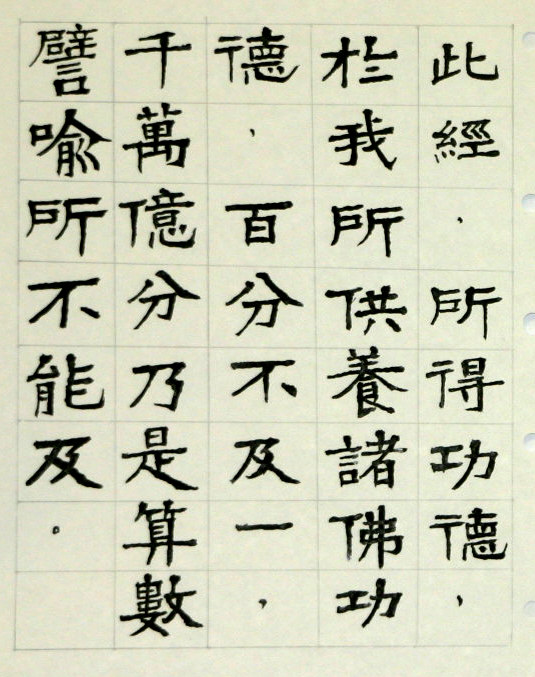 此經．所得功德，
於我所供養諸佛功
德，百分不及一，
千萬億分乃是算數
譬喻所不能及。